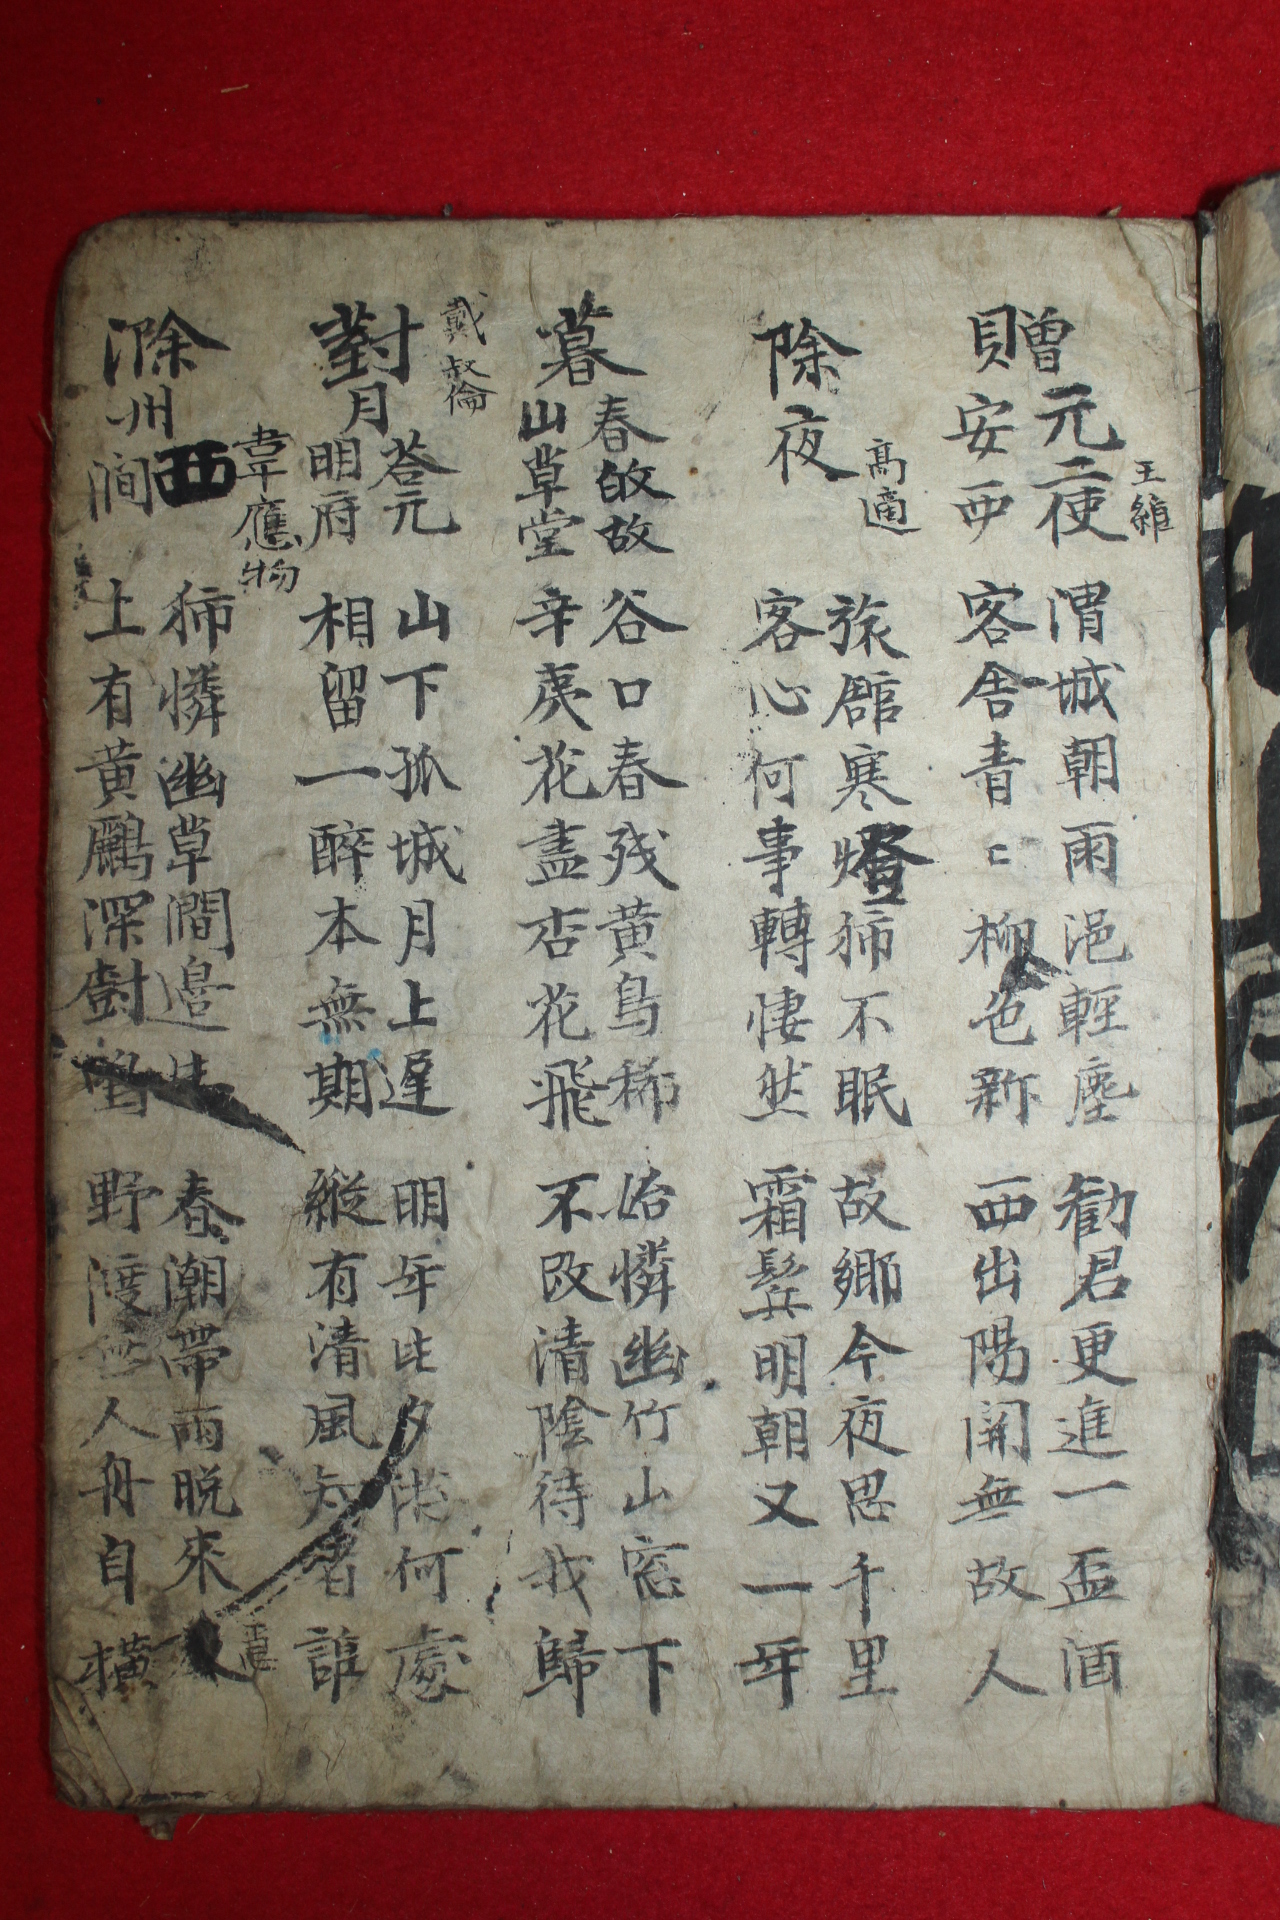 王維
贈元二使
安西
渭城朝雨浥輕塵 勸君更進一盃酒
客舍青〻柳色新 西出陽關無故人
高適
除夜
旅舘寒燈獨不眠 故鄉今夜思千里
客心何事轉悽然 霜鬂明朝又一年
暮
春故故
山草堂
谷口春殘黃鳥稀 始憐幽竹山窓下
辛夷花盡杏花飛 不改清陰待我歸
戴叔倫
對月
答元
明府
山下孤城月上遲 明年此夕遊何處
相留一醉本無期 縱有清風知者誰
韋應物
滁州西
澗
獨憐幽草澗邊生 春潮帶雨晩來
上有黃鸝深樹鳴 野渡無人舟自橫